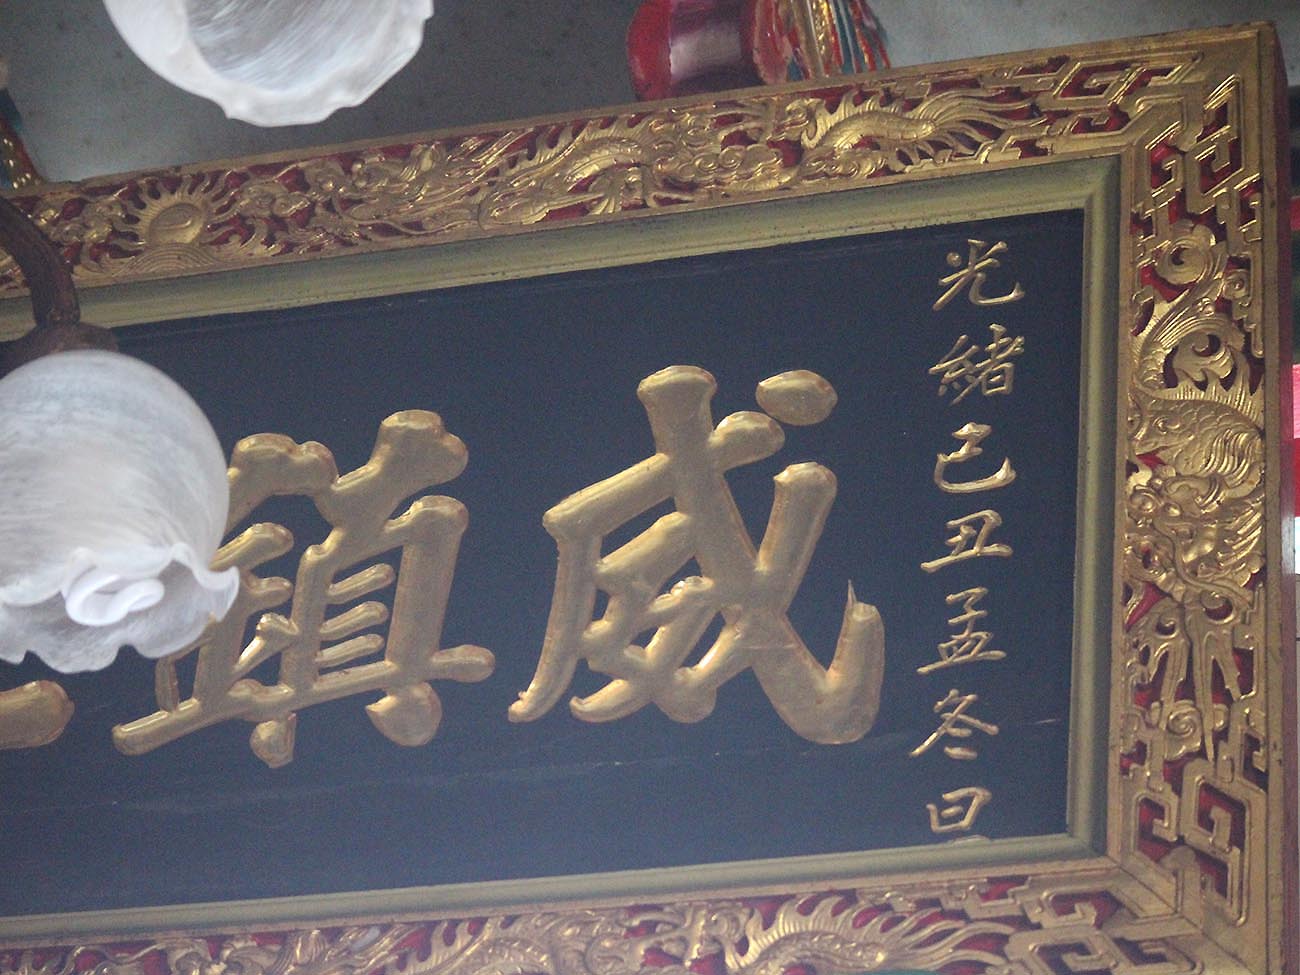 光緒己丑孟冬旦
威鎮